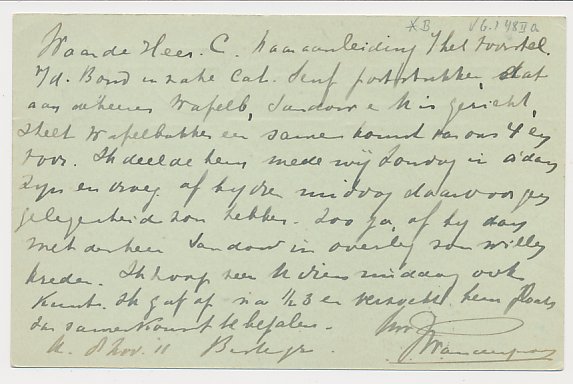 * B V G. 1 48 II a
Waarde Heer. C. Naar aanleiding v/ het voorstel
v/d. Bond in zake Cat. poststukken, dat
aan de heeren Wafelb, Sandow en U is gericht,
stelt Wafelbakker een samenkomst van ons 4en
voor. Ik deelde hem mede wij Zondag in A'dam
zijn en vroeg of hij dien middag daarvoor geen
gelegenheid zou hebben. Zoo ja, of hij dan
met den heer Sandow in overleg zou willen
treden. Ik hoop zeer U dien middag ook
kunt. Ik gaf op na 1/2 3 en verzocht hem plaats
der samenkomst te bepalen.
A. 8 Nov. 11